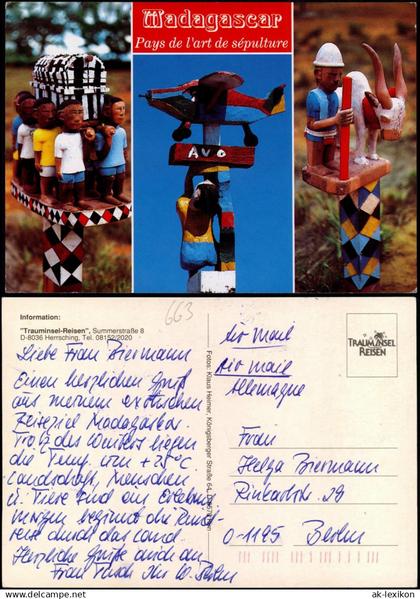 Madagascar
Pays de l'art de sépulture
AVO
Information:
"Trauminsel-Reisen", Summerstraße 8
D-8036 Herrsching, Tel. 08152/2020
663
Liebe Frau Biermann
Einen herzlichen Gruß
aus meinem exotischen
Reiseziel Madagaskar.
Trotz des Winters liegen
die Temp. um +28°C.
Landschaft, Menschen
u. Tiere sind ein Erlebnis
Morgen beginnt die Rund-
reise durch das Land.
Herzliche Grüße auch an
Frau
Berlin
Fotos: Klaus Heimer, Königsberger Straße
Air mail
Air mail
Allemagne
TRAUMINSEL
REISEN
Frau
Helga Biermann
O-1195 Berlin
© www.ansichtskarten-lexikon.de
ak-lexikon